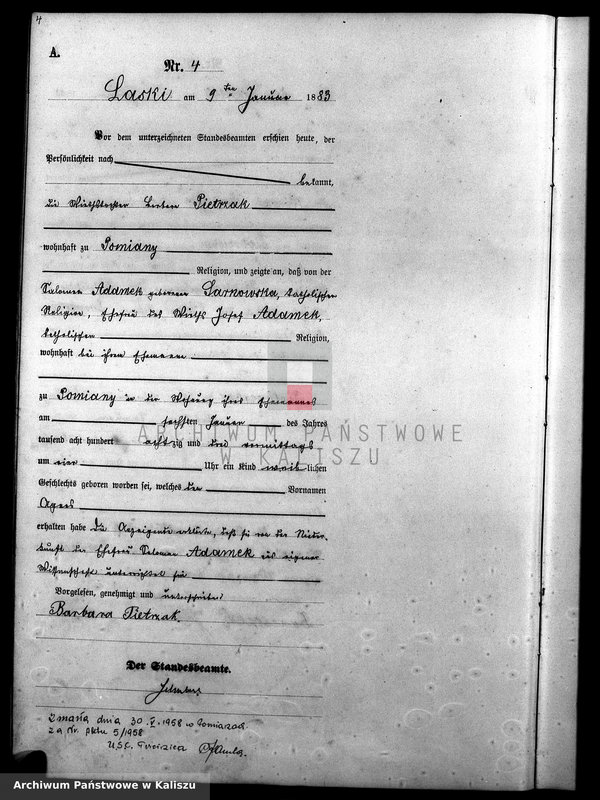 4
A.
Nr. 4
Laski am 9ten Januar 1883
Vor dem unterzeichneten Standesbeamten erschien heute, der
Persönlichkeit nach
bekannt,
die Pietrzak
wohnhaft zu Pomiany
Religion, und zeigte an, daß von der
Salomea Adamek geborenen Sarnowska, katholischer
Religion, Ehefrau des Wirths Josef Adamek,
katholischer Religion,
wohnhaft bei ihrem Ehemann
zu Pomiany in der Wohnung ihres Ehemannes
am sechsten Januar des Jahres
tausend acht hundert achtzig und drei vormittags
um vier Uhr ein Kind weiblichen
Geschlechts geboren worden sei, welches den Vornamen
Agnes
erhalten habe die Anzeigende erklärte, daß sie von der Nieder-
kunft der Ehefrau Salomea Adamek aus eigener
Wissenschaft unterrichtet sei
Vorgelesen, genehmigt und unterschrieben
Barbara Pietrzak.
Der Standesbeamte.
Zmarła dnia 30.V.1958 w Pomianach
za Nr. aktu 5/1958
U.S.C.
ARCHIWUM PAŃSTWOWE
W KALISZU
Archiwum Państwowe w Kaliszu